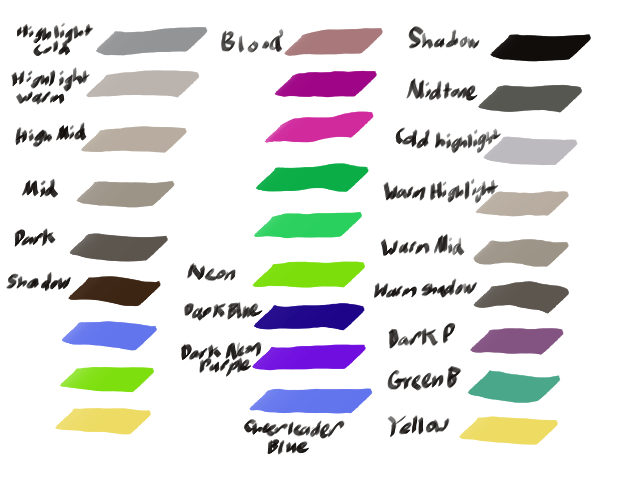 Highlight
Cold
Highlight
Warm
High Mid
Mid
Dark
Shadow
Blood
Neon
Dark Blue
Dark Neon
Purple
Cheerleader
Blue
Shadow
Midtone
Cold highlight
Warm Highlight
Warm Mid
Warm shadow
Dark P
Green B
Yellow